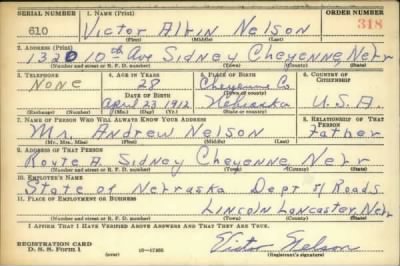 SERIAL NUMBER 1. NAME (Print) ORDER NUMBER
610 Victor Alvin Nelson 318
(First) (Middle) (Last)
2. ADDRESS (Print)
1320 10th Ave Sidney Cheyenne, Nebr
(Number and street or R. F. D. number) (Town) (County) (State)
3. TELEPHONE 4. AGE IN YEARS 5. PLACE OF BIRTH 6. COUNTRY OF CITIZENSHIP
None 28 Cheyenne Co.
DATE OF BIRTH (Town or county)
April 23 1912 Nebraska U.S.A.
(Exchange) (Number) (Mo.) (Day) (Yr.) (State or country)
7. NAME OF PERSON WHO WILL ALWAYS KNOW YOUR ADDRESS 8. RELATIONSHIP OF THAT PERSON
Mr. Andrew Nelson father
(Mr., Mrs., Miss) (First) (Middle) (Last)
9. ADDRESS OF THAT PERSON
Route A. Sidney Cheyenne Nebr
(Number and street or R. F. D. number) (Town) (County) (State)
10. EMPLOYER'S NAME
State of Nebraska Dept of Roads.
11. PLACE OF EMPLOYMENT OR BUSINESS
Lincoln Lancaster, Nebr
(Number and street or R. F. D. number) (Town) (County) (State)
I AFFIRM THAT I HAVE VERIFIED ABOVE ANSWERS AND THAT THEY ARE TRUE.
REGISTRATION CARD
D. S. S. Form 1 Victor Nelson
(Registrant's signature)